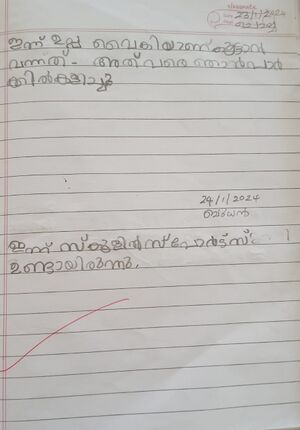 classmate
Date 23/1/2024
Page ചൊവ്വ
ഇന്ന് ഉപ്പ വൈകിയാണ് കൂട്ടാൻ
വന്നത് - അത് വരെ ഞാൻ പാർ
ക്കിൽ കളിച്ചു
24/1/2024
ബുധൻ
ഇന്ന് സ്കൂളിൽ സ്പോർട്സ്
ഉണ്ടായിരുന്നു.